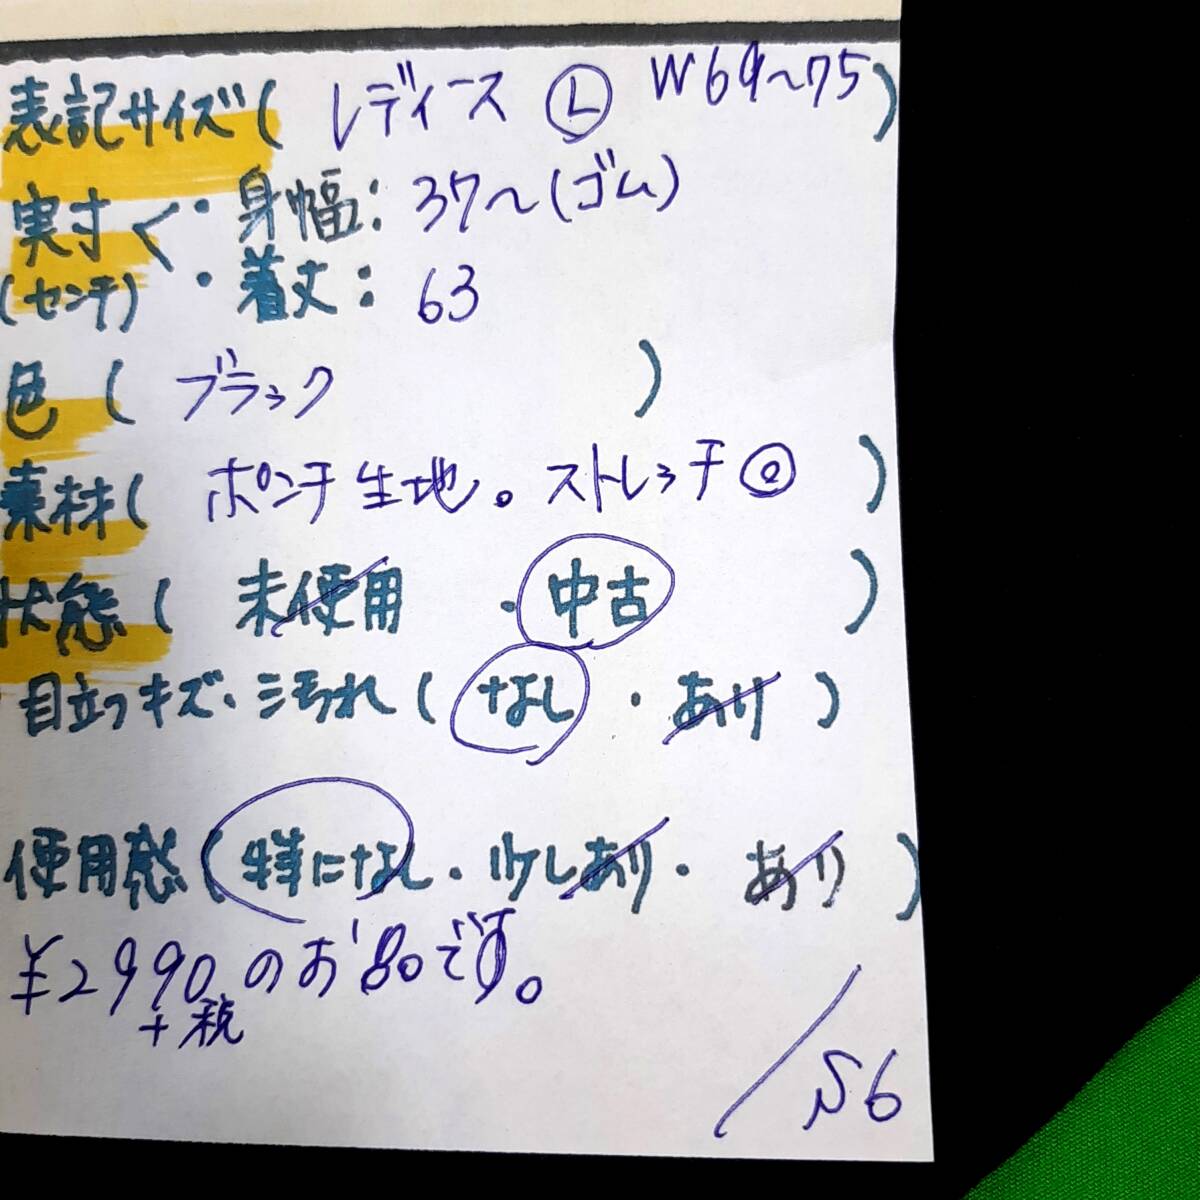 表記サイズ( レディース Ⓛ W69〜75)
実寸く・身幅: 37〜(ゴム)
(センチ) ・着丈: 63
色( ブラック )
素材( ポンチ生地。ストレッチ◎ )
状態( 未使用 ・中古 )
目立つキズ・汚れ(なし・あり)
使用感(特になし・少しあり・あり)
¥2990のお品です。
+税
/56